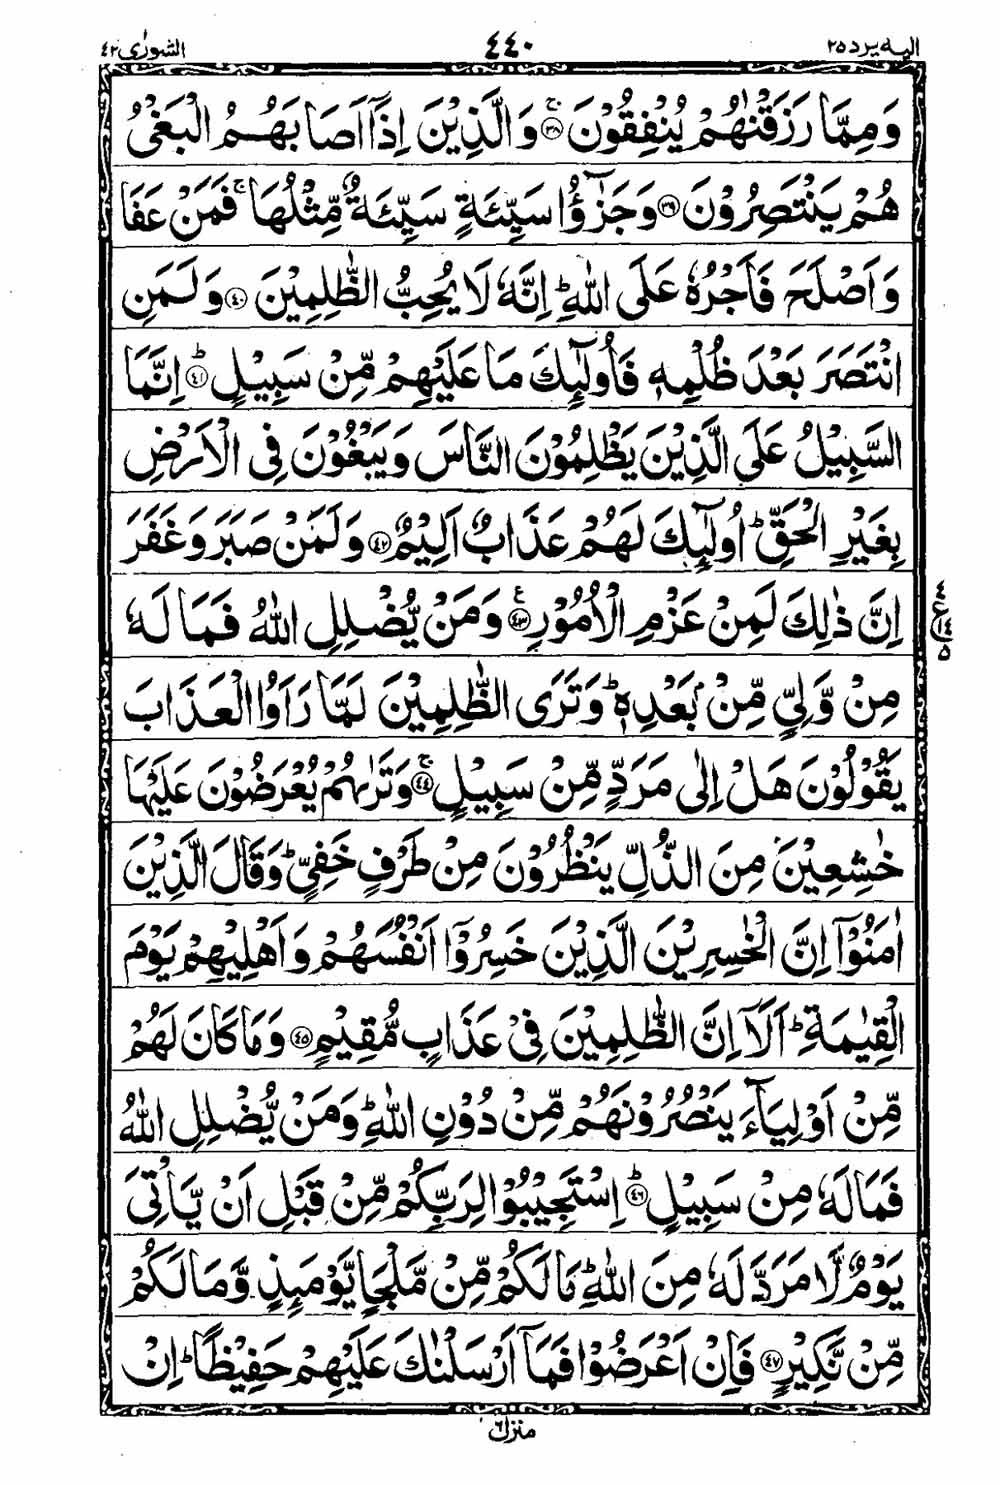 اليه يرد ٢٥ ٤٤٠ الشورٰى ٤٢
وَمِمَّا رَزَقْنٰهُمْ يُنْفِقُوْنَ ۚ‏﴿٣٨﴾ وَالَّذِيْنَ اِذَاۤ اَصَابَهُمُ الْبَغْىُ
هُمْ يَنْتَصِرُوْنَ ﴿٣٩﴾ وَجَزٰٓؤُا سَيِّئَةٍ سَيِّئَةٌ مِّثْلُهَا ۚ فَمَنْ عَفَا
وَاَصْلَحَ فَاَجْرُهٗ عَلَى اللّٰهِ ؕ اِنَّهٗ لَا يُحِبُّ الظّٰلِمِيْنَ ﴿٤٠﴾ وَلَمَنِ
انْتَصَرَ بَعْدَ ظُلْمِهٖ فَاُولٰٓئِكَ مَا عَلَيْهِمْ مِّنْ سَبِيْلٍ ؕ‏﴿٤١﴾ اِنَّمَا
السَّبِيْلُ عَلَى الَّذِيْنَ يَظْلِمُوْنَ النَّاسَ وَيَبْغُوْنَ فِى الْاَرْضِ
بِغَيْرِ الْحَقِّ ؕ اُولٰٓئِكَ لَهُمْ عَذَابٌ اَلِيْمٌ ﴿٤٢﴾ وَلَمَنْ صَبَرَ وَغَفَرَ
اِنَّ ذٰلِكَ لَمِنْ عَزْمِ الْاُمُوْرِ ﴿٤٣﴾ ع وَمَنْ يُّضْلِلِ اللّٰهُ فَمَا لَهٗ
٤ ع ١٤ ٥
مِنْ وَّلِيٍّ مِّنْۢ بَعْدِهٖ ؕ وَتَرَى الظّٰلِمِيْنَ لَمَّا رَاَوُا الْعَذَابَ
يَقُوْلُوْنَ هَلْ اِلٰى مَرَدٍّ مِّنْ سَبِيْلٍ ۚ‏﴿٤٤﴾ وَتَرٰىهُمْ يُعْرَضُوْنَ عَلَيْهَا
خٰشِعِيْنَ مِنَ الذُّلِّ يَنْظُرُوْنَ مِنْ طَرْفٍ خَفِيٍّ ؕ وَقَالَ الَّذِيْنَ
اٰمَنُوْۤا اِنَّ الْخٰسِرِيْنَ الَّذِيْنَ خَسِرُوْۤا اَنْفُسَهُمْ وَاَهْلِيْهِمْ يَوْمَ
الْقِيٰمَةِ ؕ اَلَاۤ اِنَّ الظّٰلِمِيْنَ فِىْ عَذَابٍ مُّقِيْمٍ ﴿٤٥﴾ وَمَا كَانَ لَهُمْ
مِّنْ اَوْلِيَآءَ يَنْصُرُوْنَهُمْ مِّنْ دُوْنِ اللّٰهِ ؕ وَمَنْ يُّضْلِلِ اللّٰهُ
فَمَا لَهٗ مِنْ سَبِيْلٍ ؕ‏﴿٤٦﴾ اِسْتَجِيْبُوْا لِرَبِّكُمْ مِّنْ قَبْلِ اَنْ يَّاْتِىَ
يَوْمٌ لَّا مَرَدَّ لَهٗ مِنَ اللّٰهِ ؕ مَا لَكُمْ مِّنْ مَّلْجَاٍ يَّوْمَئِذٍ وَّمَا لَكُمْ
مِّنْ نَّكِيْرٍ ﴿٤٧﴾ فَاِنْ اَعْرَضُوْا فَمَاۤ اَرْسَلْنٰكَ عَلَيْهِمْ حَفِيْظًا ؕ اِنْ
منزل ٦